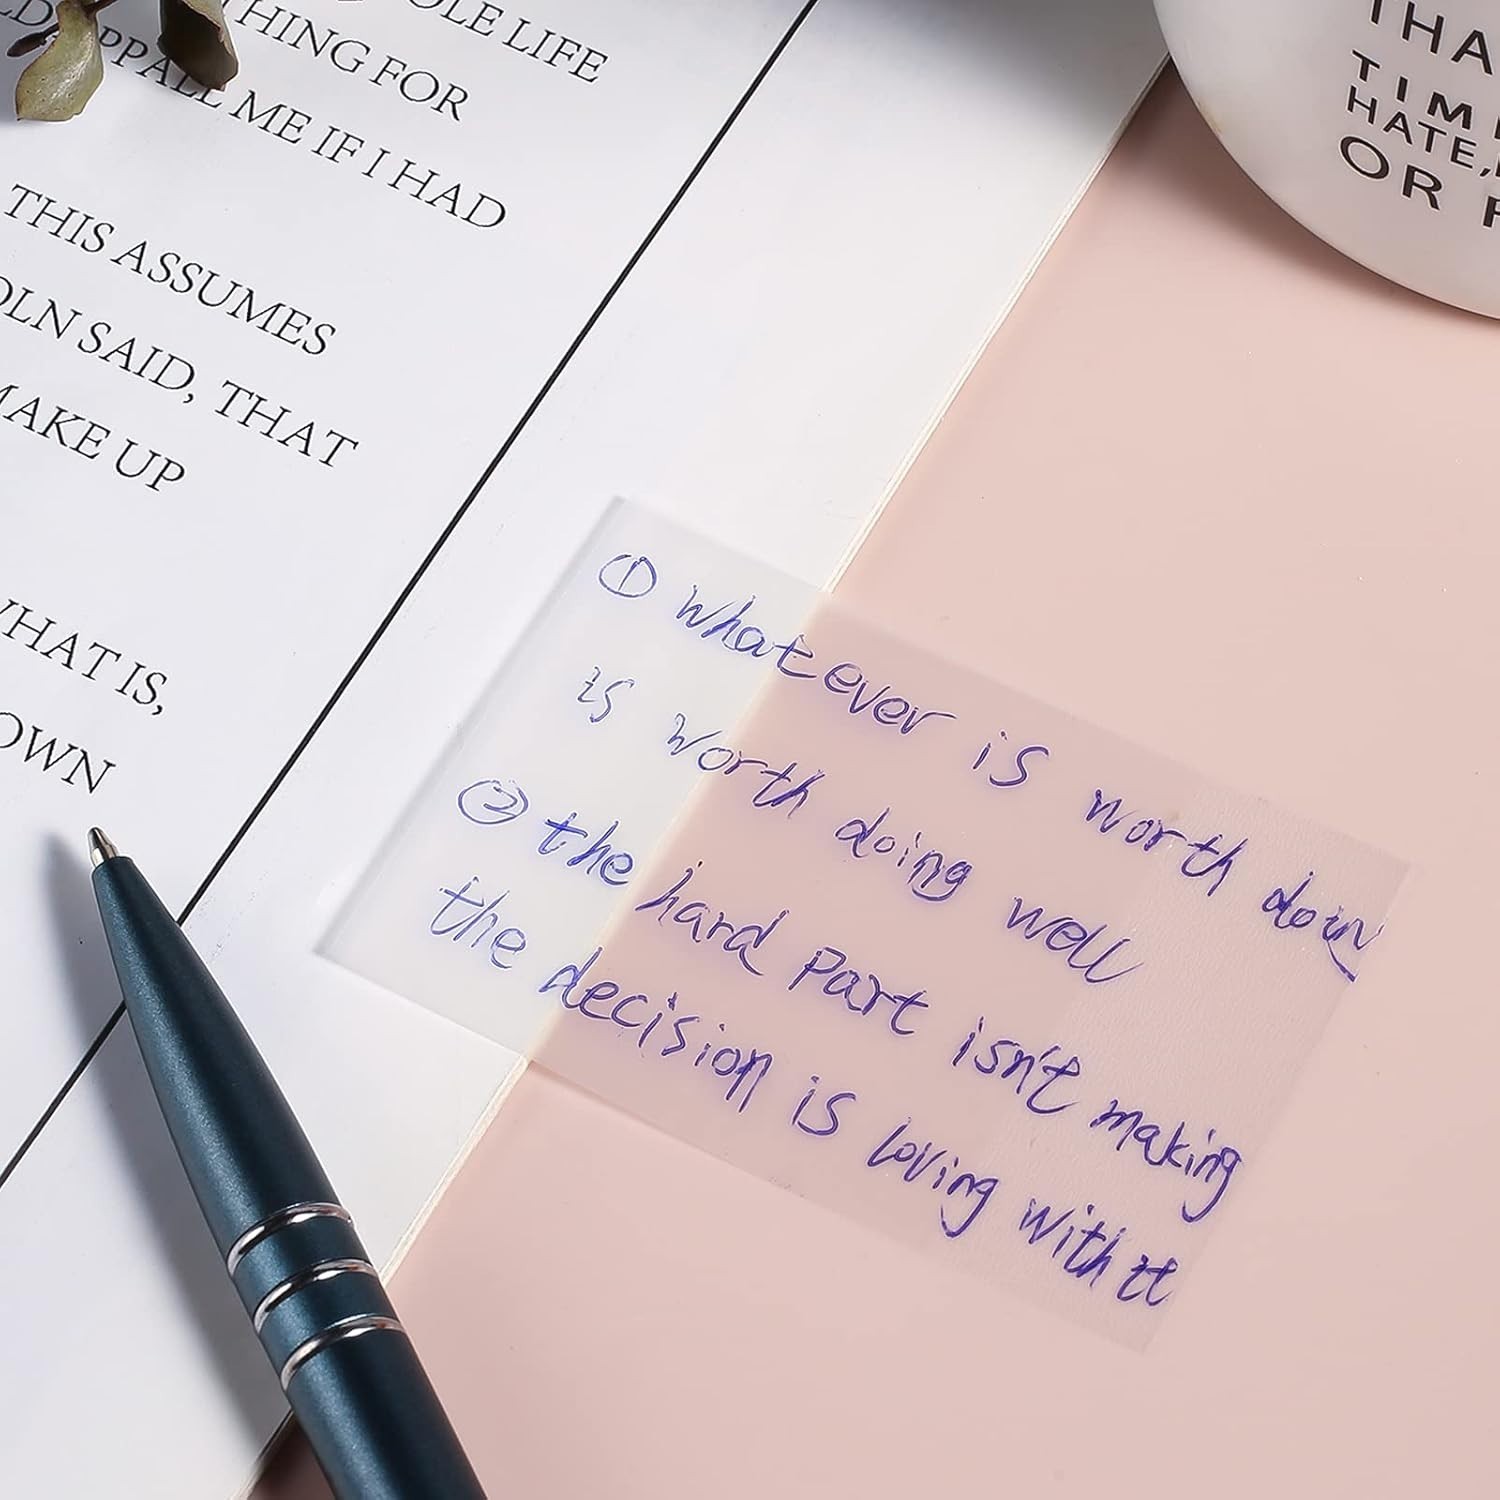 OLE LIFE
THING FOR
PPALL ME IF I HAD
THIS ASSUMES
OLN SAID, THAT
MAKE UP
WHAT IS,
OWN
THA
TIM
HATE,
OR F
① whatever is worth doin
is worth doing well
② the hard part isn't making
the decision is loving with it